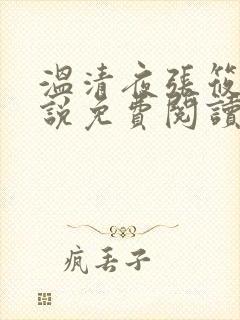 溫清夜張筱
說免費閱讀
疯丢子